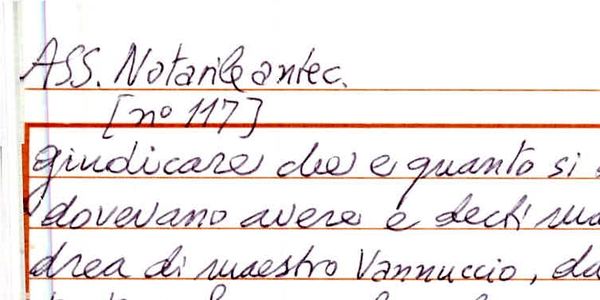 ASS. Notarile antec.
[nº 117]
giudicare che e quanto si
dovevano avere e decti
drea di maestro Vannuccio, da